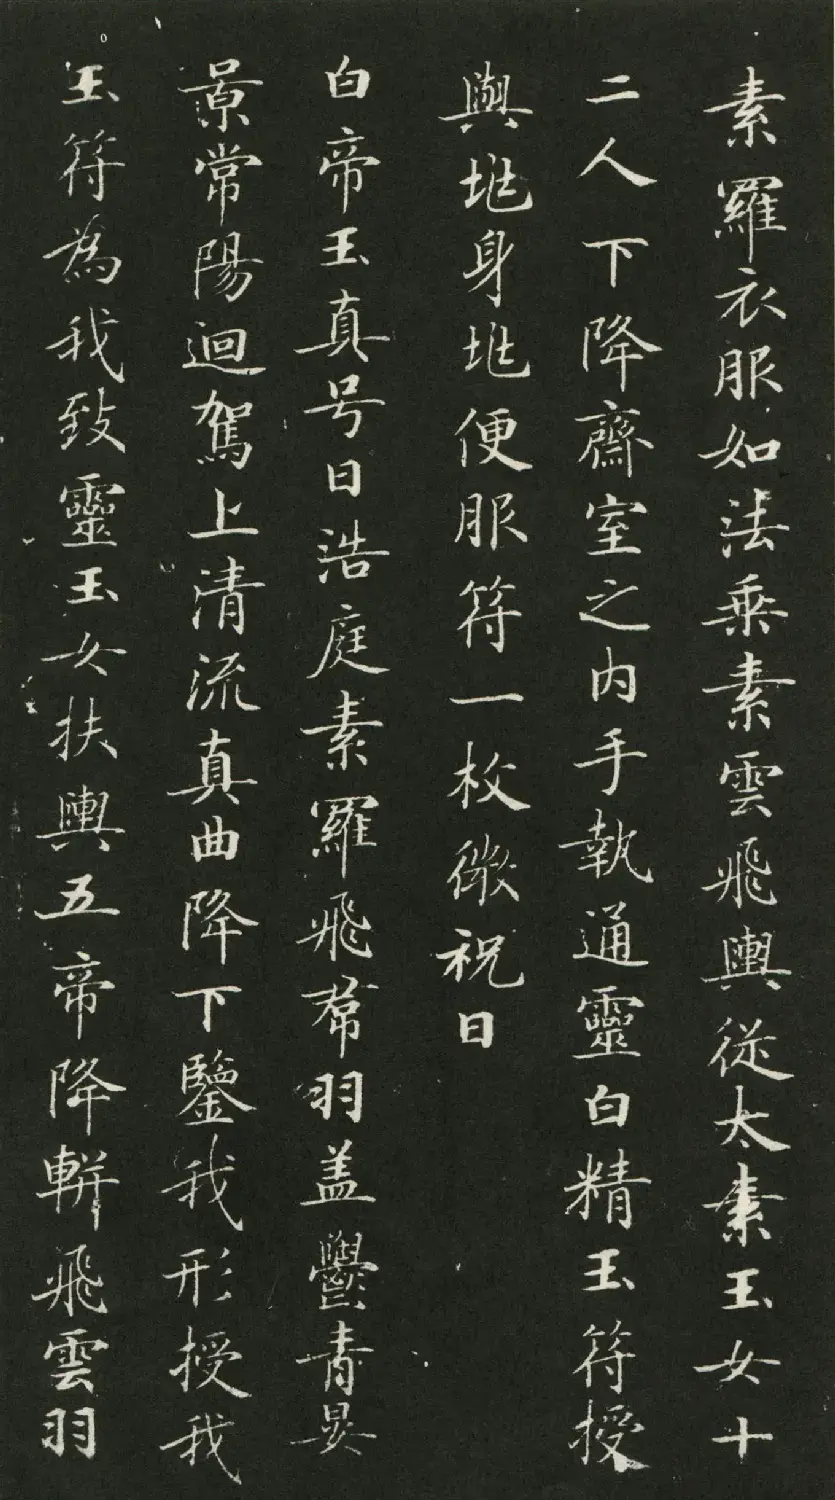 素羅衣服如法乗素雲飛輿從太素玉女十
二人下降齋室之内手執通靈白精玉符授
與兆身兆便服符一枚微祝曰
白帝玉真号曰浩庭素羅飛帬羽盖鬱青
景常陽迴駕上清流真曲降下鑒我形授我
玉符為我致靈玉女扶輿五帝降軿飛雲羽